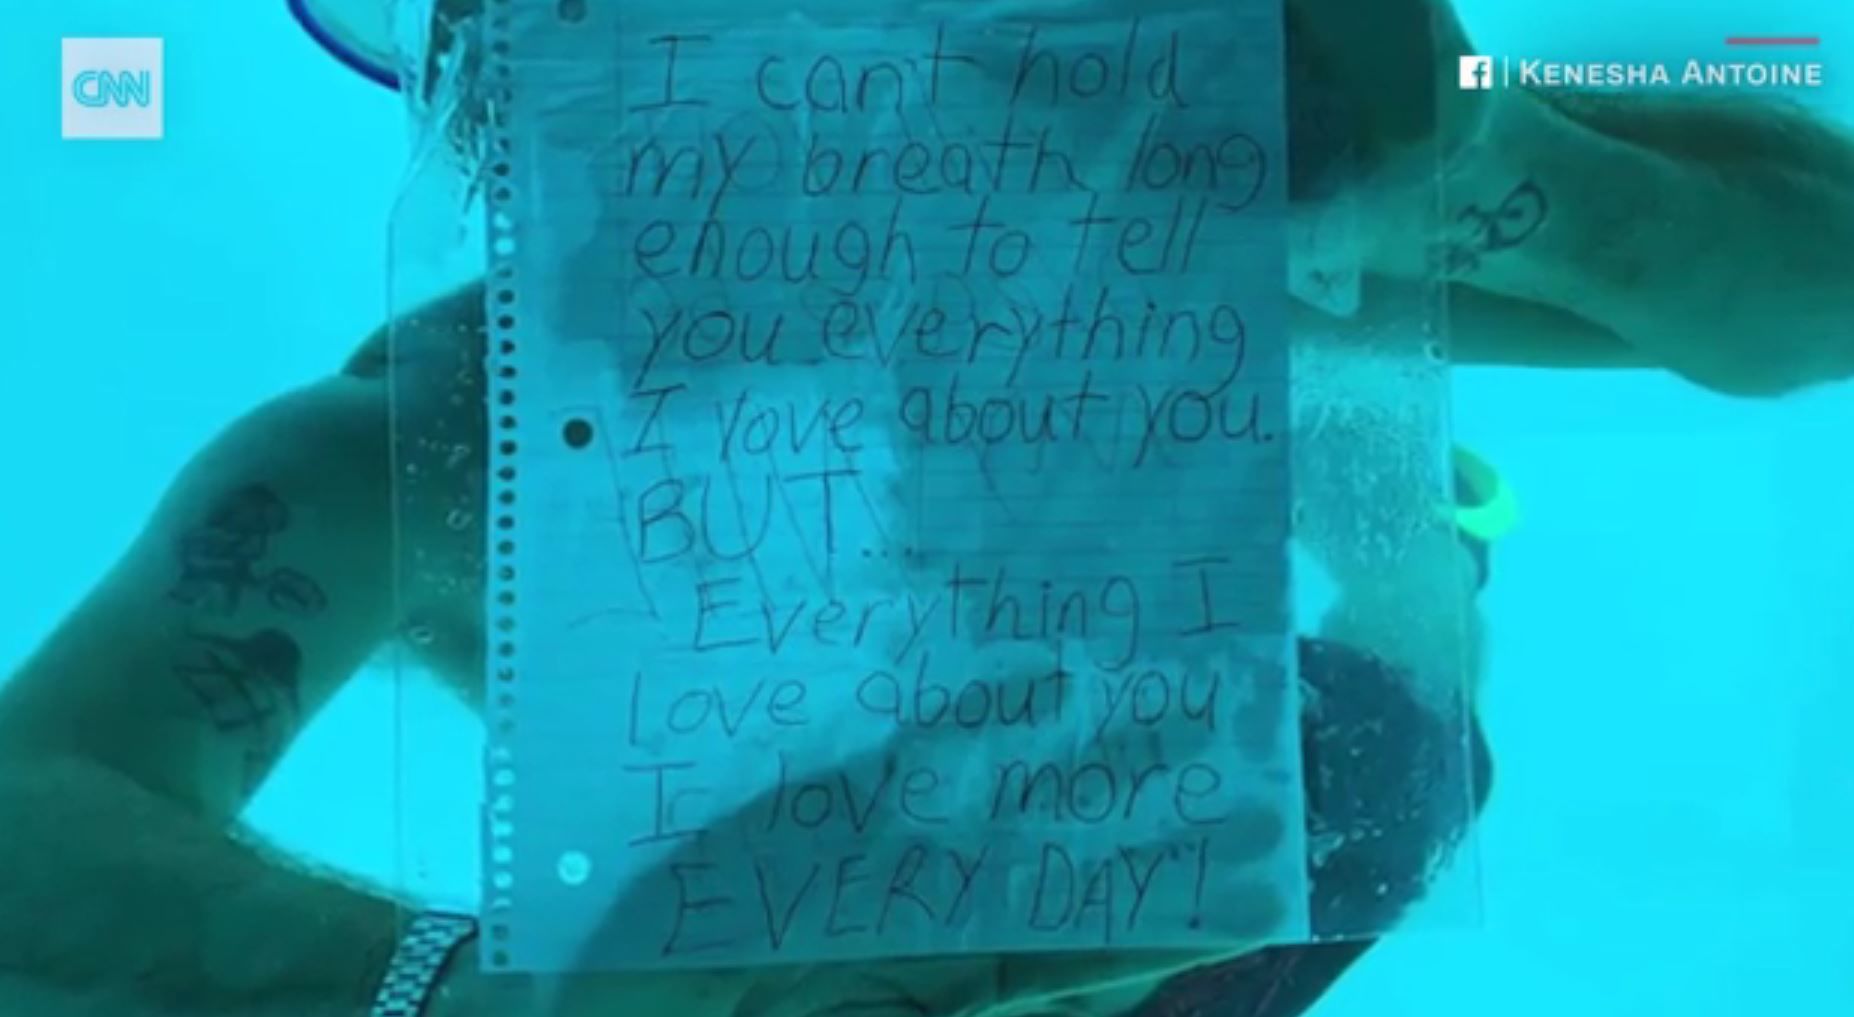 CNN
f | KENESHA ANTOINE
I can't hold
my breath long
enough to tell
you everything
I love about you.
BUT....
Everything I
Love about you
I love more
EVERY DAY!